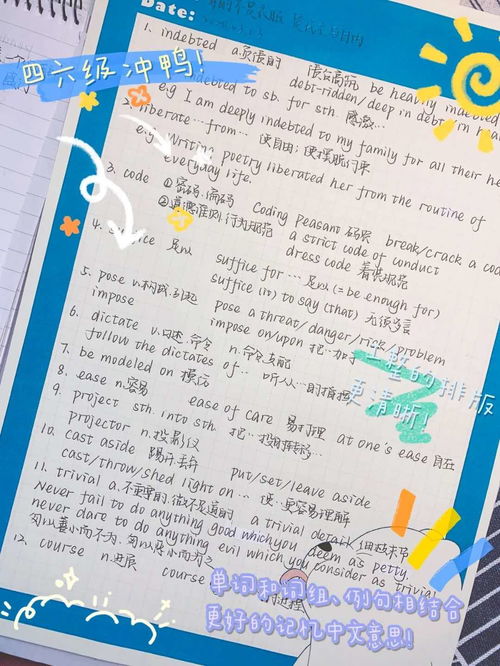 Date:
四六级冲鸭!
1. indebted a.负债的 债台高筑 be heavily indebted
debt-ridden/deep in debt
indebted to sb. for sth. 感激…
e.g I am deeply indebted to my family for all their he
2. liberate… from… 使自由;使摆脱约束
e.g. Writing poetry liberated her from the routine of
everyday life.
3. code ①密码.编码 Coding peasant 码农 break/crack a co
②道德准则.行为规范 a strict code of conduct
dress code 着装规范
4. 足以 suffice for… 足以(=be enough for)
suffice (it) to say (that) 无须多言
5. pose v.构成.引起 pose a threat/danger/risk/problem
impose impose on/upon 把…加于
6. dictate v.口述.命令 n.命令.支配
follow the dictates of… 听从…的指挥
工整的排版
更清晰!
7. be modeled on 模仿
8. ease n.容易 ease of care 易打理 at one's ease 自在
9. project sth. into sth. 把…投射到
projector n.投影仪
10. cast aside put/set/leave aside
cast/throw/shed light on… 使…更容易理解
11. trivial a.不重要的.微不足道的 a trivial detail 细枝末节
Never fail to do anything good which you deem as petty.
never dare to do anything evil which you consider as trivial
勿以善小而不为.勿以恶小而为之
12. course n.进展 course
单词和词组、例句相结合
更好的记忆中文意思!